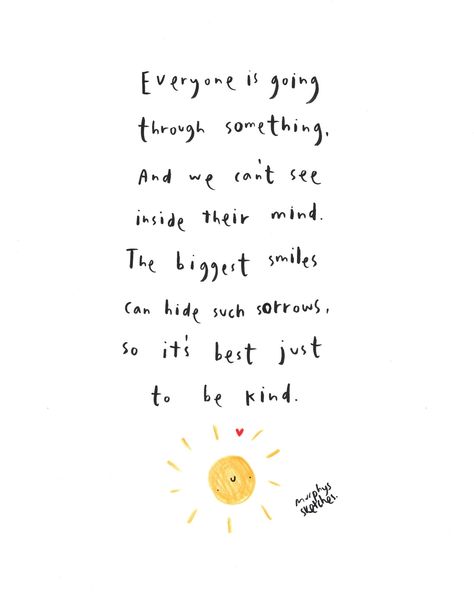 Everyone is going
through something,
And we can't see
inside their mind.
The biggest smiles
can hide such sorrows,
so it's best just
to be kind.
murphys
sketches.